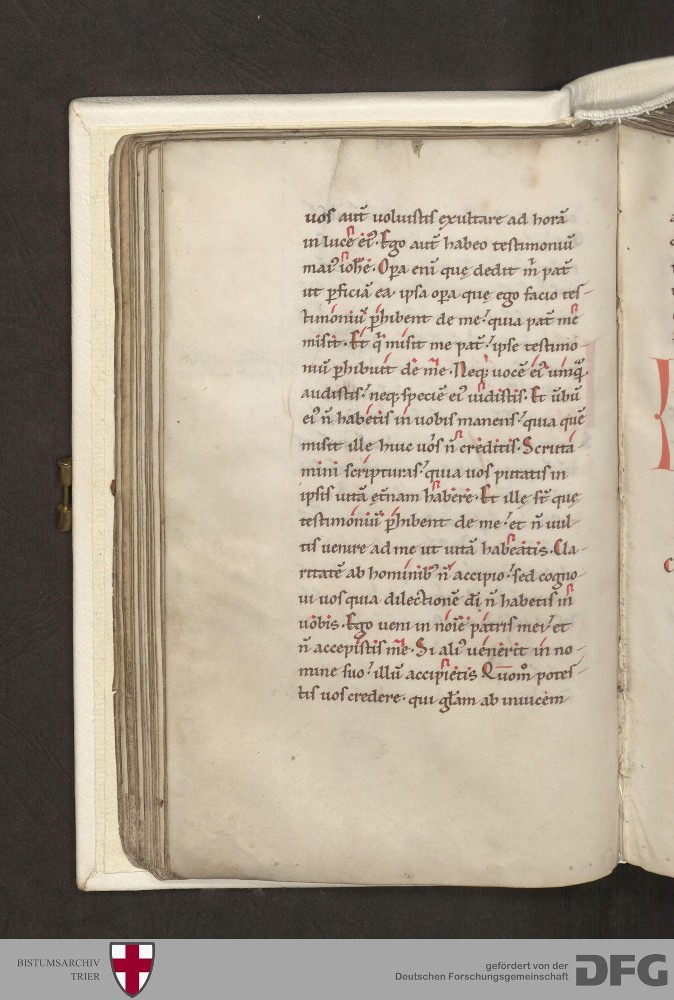 uos aut̄ uoluistis exultare ad horā
in luce ei᷒. Ego aut̄ habeo testimoniū
mai᷒ iohē. Oꝑa eni̅ quę dedit m̄ pat̄
ut ꝑficiā ea. ipsa oꝑa quę ego facio tes-
timoniū ꝑhibent de me. quia pat̄ me
misit. Et q̄ misit me pat̄. ipse testimo-
niū ꝑhibuit de me. Neq; uocē ei᷒ umq̄̄
audistis. neq; speciē ei᷒ uidistis. Et ūbū
ei᷒ n̄ habetis in uobis manens. quia quē
misit ille huic uos n̄ creditis. Scruta-
mini scripturas. quia uos putatis in
ipsis uitā et̄nam habere. Et ille st̄ quę
testimoniū ꝑhibent de me. et n̄ uul-
tis uenire ad me ut uitā habeatis. Cla-
ritatē ab hominib᷒ n̄ accipio. sed cogno-
ui uos quia dilectionē di̅ n̄ habetis in
uobis. Ego ueni in noīe patris mei. et
n̄ accepistis me. Si ali᷒ uenerit in no-
mine suo. illū accipietis Quom̊ potes-
tis uos credere. qui gl̄am ab inuicem
BISTUMSARCHIV
TRIER
gefördert von der
Deutschen Forschungsgemeinschaft
DFG